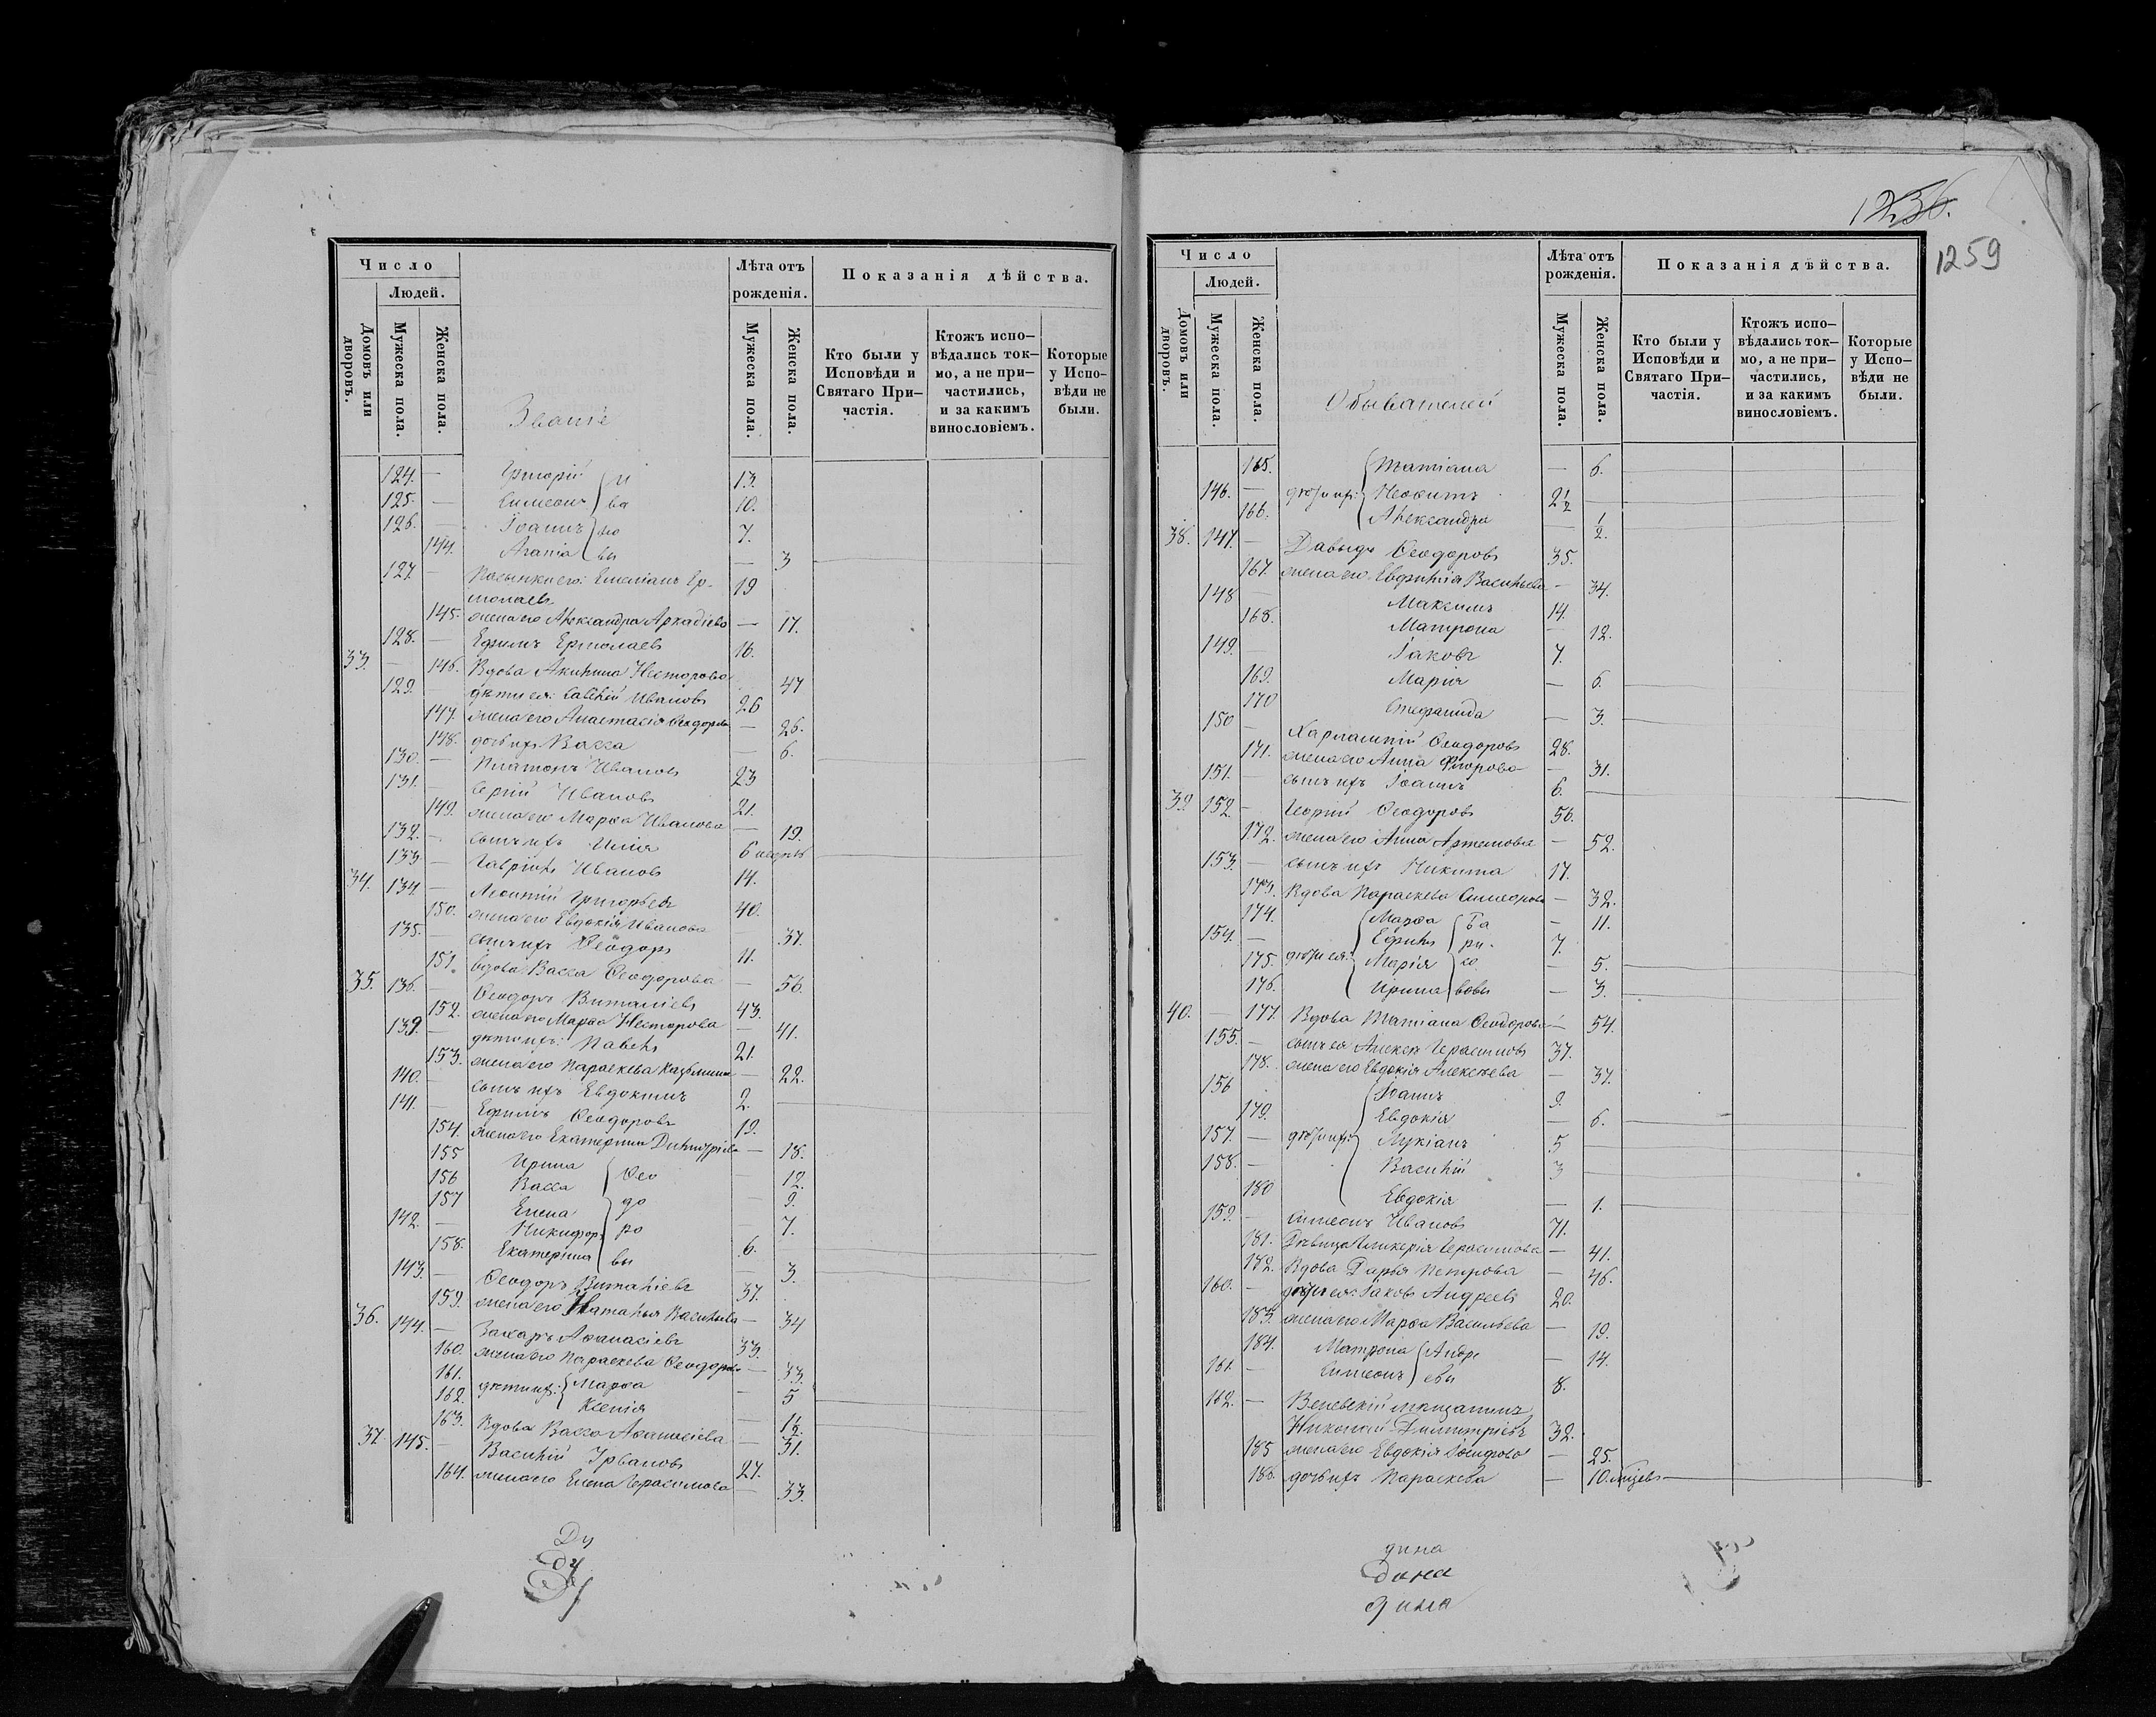 1256.
1259
Число
Людей.
Домовъ или дворовъ.
Мужеска пола.
Женска пола.
Званіе
Лѣта отъ рожденія.
Мужеска пола.
Женска пола.
Показанія дѣйства.
Кто были у Исповѣди и Святаго При-
частія.
Ктожъ испо-
вѣдались ток-
мо, а не при-
частились,
и за какимъ
винословіемъ.
Которые
у Испо-
вѣди не
были.
124. — Григорій 13.
125. — Симеонъ ва 10.
126. — Іоаннъ но 7.
144. Агапія вы — 3
127. — Пасынки его: Емеліанъ Ер-
молаевъ 19
145. жена его Александра Аркадіева — 17.
128. — Ефимъ Ермолаевъ 16.
33. — 146. Вдова Акилина Несторова 47
129. — дѣти ея: Савелій Ивановъ 26
147. жена его Анастасія Ѳеодорова — 26.
148. дочь ихъ Васса — 6.
130. — Платонъ Ивановъ 23
131. — Сергій Ивановъ 21.
149. жена его Марѳа Иванова — 19.
132. — сынъ ихъ Илія 6
133 — Гавріилъ Ивановъ 14.
34. 134. — Леонтій Григорьевъ 40.
150. жена его Евдокія Иванова — 37.
135. — сынъ ихъ Ѳеодоръ 11.
151. вдова Васса Ѳеодорова — 56.
35. 136. — Ѳеодоръ Виталіевъ 43.
152. жена его Марѳа Несторова — 41.
139. — дѣти ихъ: Павелъ 21.
153. жена его Параскева — 22.
140. — сынъ ихъ Евдокимъ 2.
141. — Ефимъ Ѳеодоровъ 19.
154. жена его Екатерина Димитріева — 18.
155 Ирина Ѳео 12.
156 Васса до — 9.
157 Елена ро — 7.
142. — Никифоръ 6.
158. Екатерина вы — 3.
143. — Ѳеодоръ Виталіевъ 37.
159. жена его Наталья Васильева — 34
36. 144. — Захаръ Аѳанасіевъ 33.
160. жена его Параскева Ѳеодорова — 33.
161. дѣти ихъ: Марѳа — 5
162. Ксенія — 1/2.
163. Вдова Васса Аѳанасіева — 51.
37. 145. — Василій Ивановъ 27.
164. жена его Елена Герасимова — 33.
Ду
Ду
Число
Людей.
Домовъ или дворовъ.
Мужеска пола.
Женска пола.
Обывателей
Лѣта отъ рожденія.
Мужеска пола.
Женска пола.
Показанія дѣйства.
Кто были у
Исповѣди и
Святаго При-
частія.
Ктожъ испо-
вѣдались ток-
мо, а не при-
частились,
и за какимъ
винословіемъ.
Которые
у Испо-
вѣди не
были.
165. Татіана — 6.
146. — дѣти ихъ: Неофитъ 2 1/2
166. Александра — 1/2.
38. 147. — Давыдъ Ѳеодоровъ 35.
167. жена его Евфимія Васильева — 34.
148 — Максимъ 14.
168. Матрона — 12.
149. — Іаковъ 7.
169. Марія — 6.
170 Стефанида — 3.
150 — Харлампій Ѳеодоровъ 28.
171. жена его Анна Флорова — 31.
151. — сынъ ихъ Іоаннъ 6.
39. 152. — Георгій Ѳеодоровъ 56.
172. жена его Анна Артемова — 52.
153. — сынъ ихъ Никита 17.
173. Вдова Параскева — 32.
174. Марѳа Га — 11.
154. — дѣти ея: Ефимъ ри 7.
175. Марія со — 5.
176. Ирина вовы — 3.
40. — 177. Вдова Татіана Ѳеодорова — 54.
155. — сынъ ея Алексѣй Герасимовъ 37.
178. жена его Евдокія Алексѣева — 37.
156 Іоаннъ 9.
179. Евдокія — 6.
157. — дѣти ихъ: Лукіанъ 5
158. — Василій 3
180 Евдокія — 1.
159. — Симеонъ Ивановъ 71.
181. Дѣвица Гликерія Герасимова — 41.
182. Вдова Дарья Петрова — 46.
160. — дѣти ея: Іаковъ Андреевъ 20.
183. жена его Марѳа Васильева — 19.
184. Матрона Андре — 14.
161. — Симеонъ евы 8.
162. — Веневскій мѣщанинъ
Николай Димитріевъ 32.
185 жена его Евдокія Іосифова — 25.
186. дочь ихъ Параскева — 10. мѣсяцевъ
дина
дина
дина